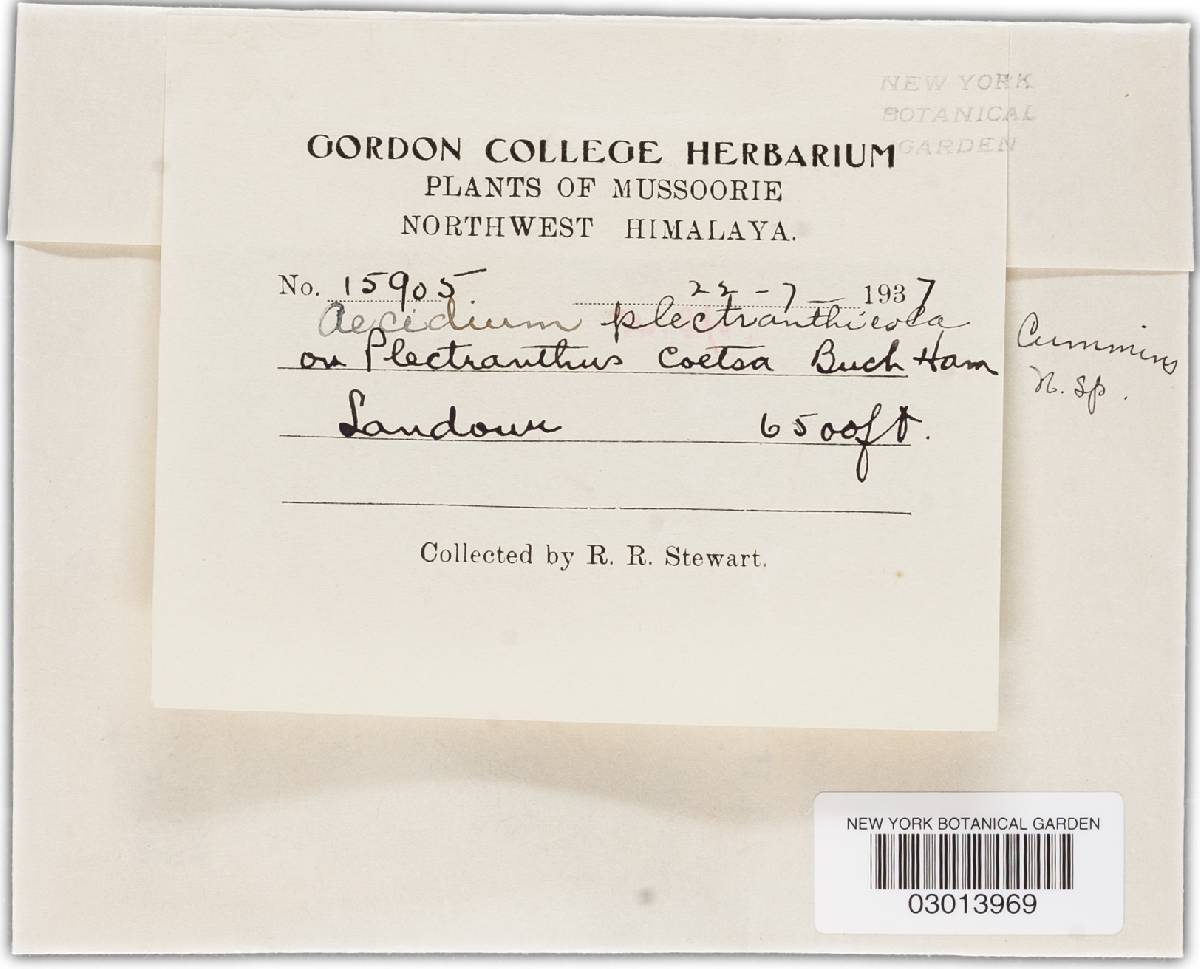 NEW YORK
BOTANICAL
GARDEN
GORDON COLLEGE HERBARIUM
PLANTS OF MUSSOORIE
NORTHWEST HIMALAYA.
No. 15905 22-7- 1937
Aecidium plectranthicola Cummins
n. sp.
on Plectranthus Coetsa Buch Ham
Landour 6500 ft.
Collected by R. R. Stewart.
NEW YORK BOTANICAL GARDEN
03013969